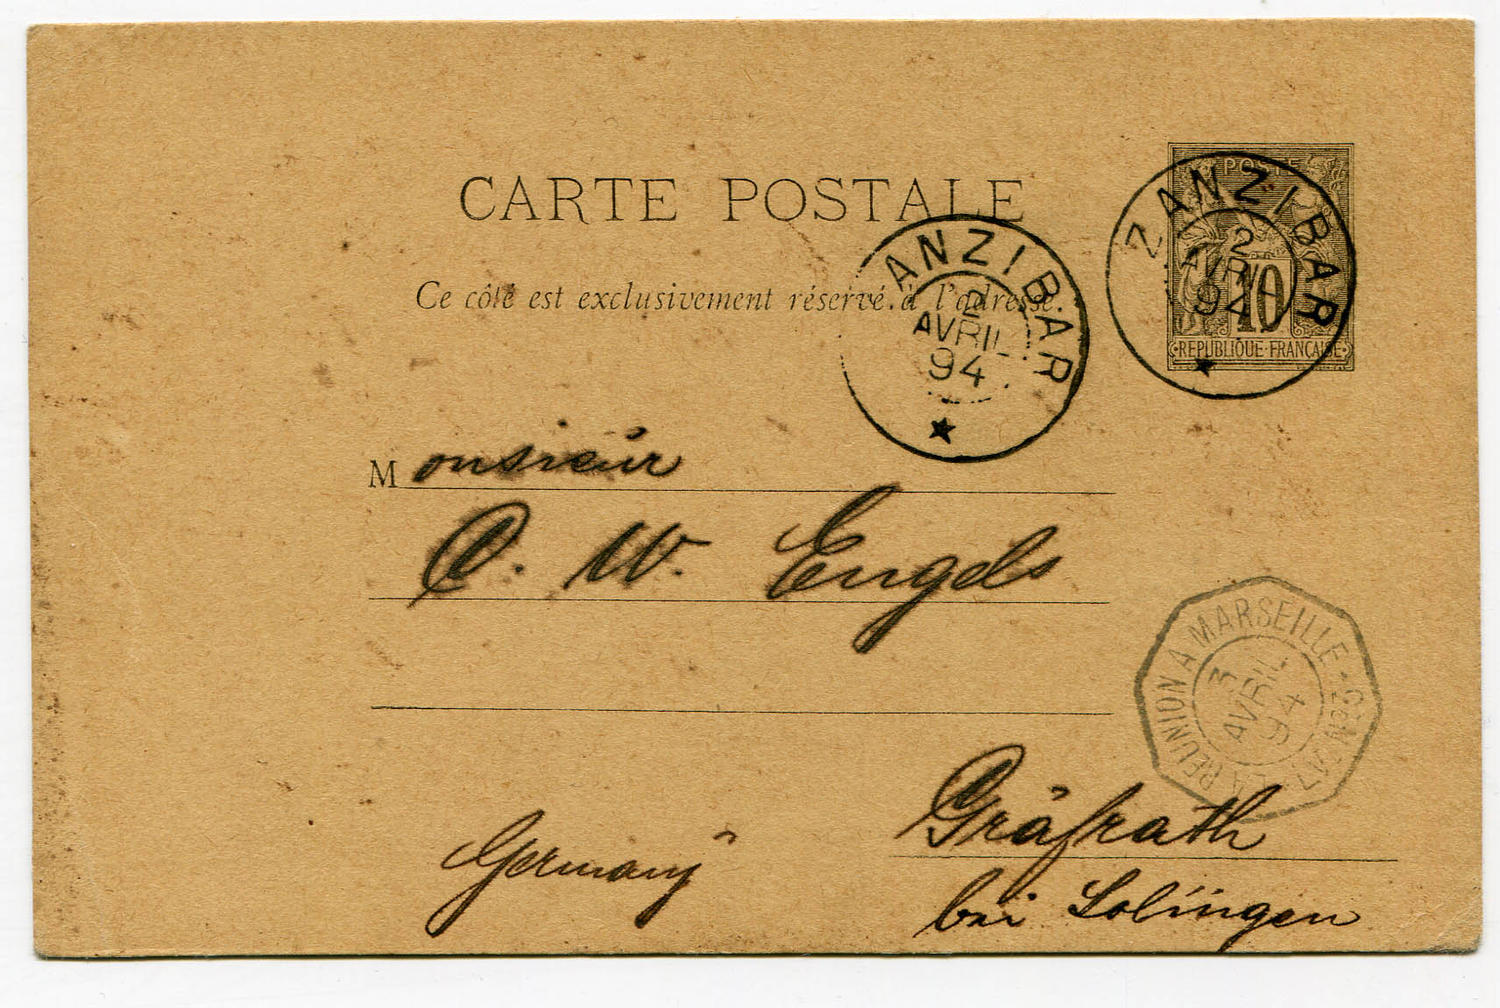 CARTE POSTALE
Ce côté est exclusivement réservé à l'adresse.
POSTE
10
REPUBLIQUE FRANCAISE
ZANZIBAR
2
AVRIL
94
ANZIBAR
2
AVRIL
94
Monsieur
C. W. Engels
LA REUNION A MARSEILLE
3
AVRIL
94
Gräfrath
bei Solingen
Germany